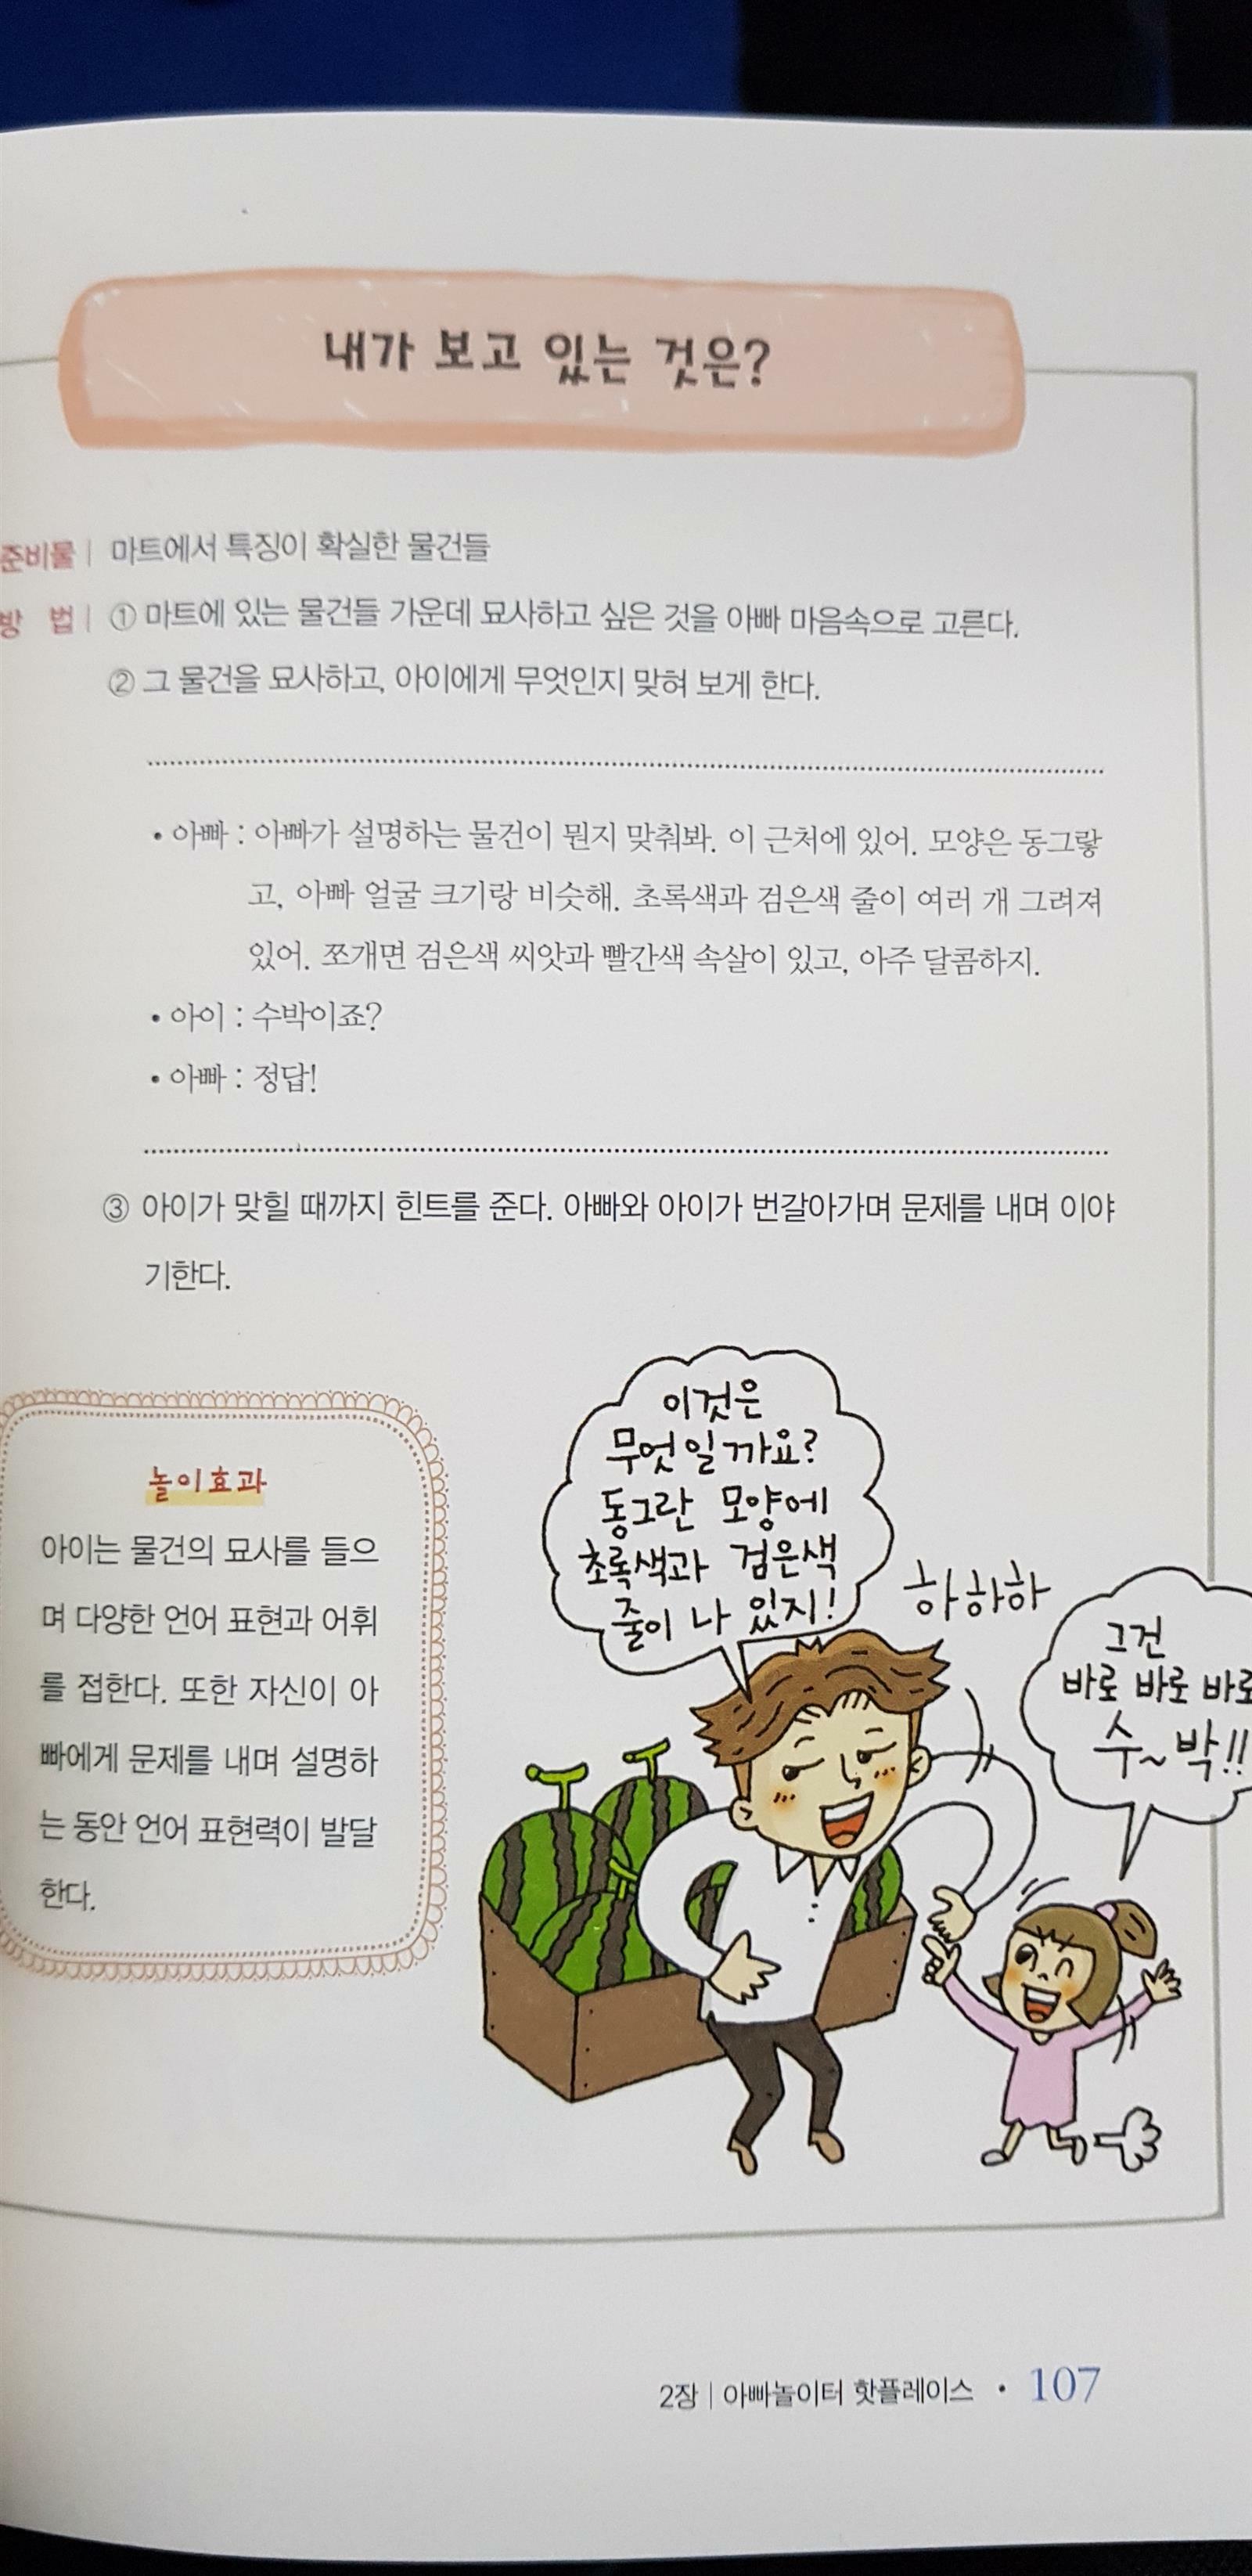 내가 보고 있는 것은?
준비물 | 마트에서 특징이 확실한 물건들
방 법 | ① 마트에 있는 물건들 가운데 묘사하고 싶은 것을 아빠 마음속으로 고른다.
② 그 물건을 묘사하고, 아이에게 무엇인지 맞혀 보게 한다.
• 아빠 : 아빠가 설명하는 물건이 뭔지 맞춰봐. 이 근처에 있어. 모양은 동그랗
고, 아빠 얼굴 크기랑 비슷해. 초록색과 검은색 줄이 여러 개 그려져
있어. 쪼개면 검은색 씨앗과 빨간색 속살이 있고, 아주 달콤하지.
• 아이 : 수박이죠?
• 아빠 : 정답!
③ 아이가 맞힐 때까지 힌트를 준다. 아빠와 아이가 번갈아가며 문제를 내며 이야
기한다.
놀이효과
아이는 물건의 묘사를 들으
며 다양한 언어 표현과 어휘
를 접한다. 또한 자신이 아
빠에게 문제를 내며 설명하
는 동안 언어 표현력이 발달
한다.
이것은
무엇일까요?
동그란 모양에
초록색과 검은색
줄이 나 있지!
하하하
그건
바로 바로 바로
수~박!!
2장 | 아빠놀이터 핫플레이스 • 107